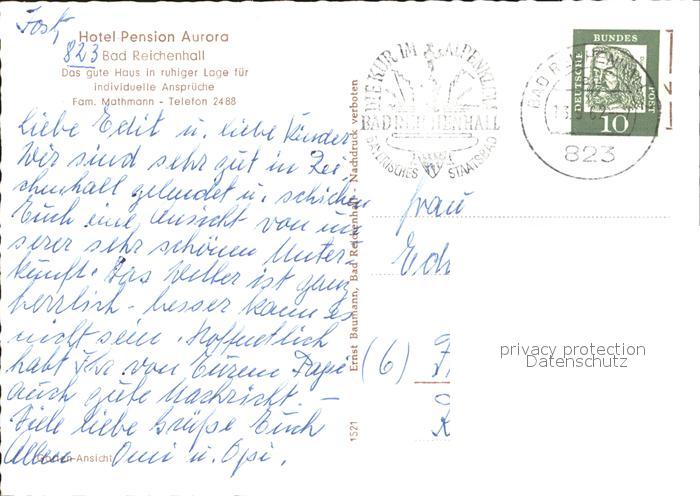 Post
Hotel Pension Aurora
823 Bad Reichenhall
Das gute Haus in ruhiger Lage für
individuelle Ansprüche
Fam. Mathmann - Telefon 2488
Liebe Edit u. liebe Kinder
Wir sind sehr gut in Rei-
chenhall gelandet u. schicken
Euch eine Ansicht von un
serer sehr schönen Unter-
kunft. Das Wetter ist ganz
herrlich - besser kann es
nicht sein. Hoffentlich
habt Ihr von Eurem Papi
auch gute Nachricht. —
Viele liebe Grüße Euch
Allen Omi u. Opi.
Garten-Ansicht
1521
Ernst Baumann, Bad Reichenhall - Nachdruck verboten
DIE KUR IM ALPENKLIMA
BAD REICHENHALL
BAYERISCHES STAATSBAD
BAD REICHENHALL
823
DEUTSCHE BUNDESPOST
10
Frau
Edi
(6)
privacy protection
Datenschutz